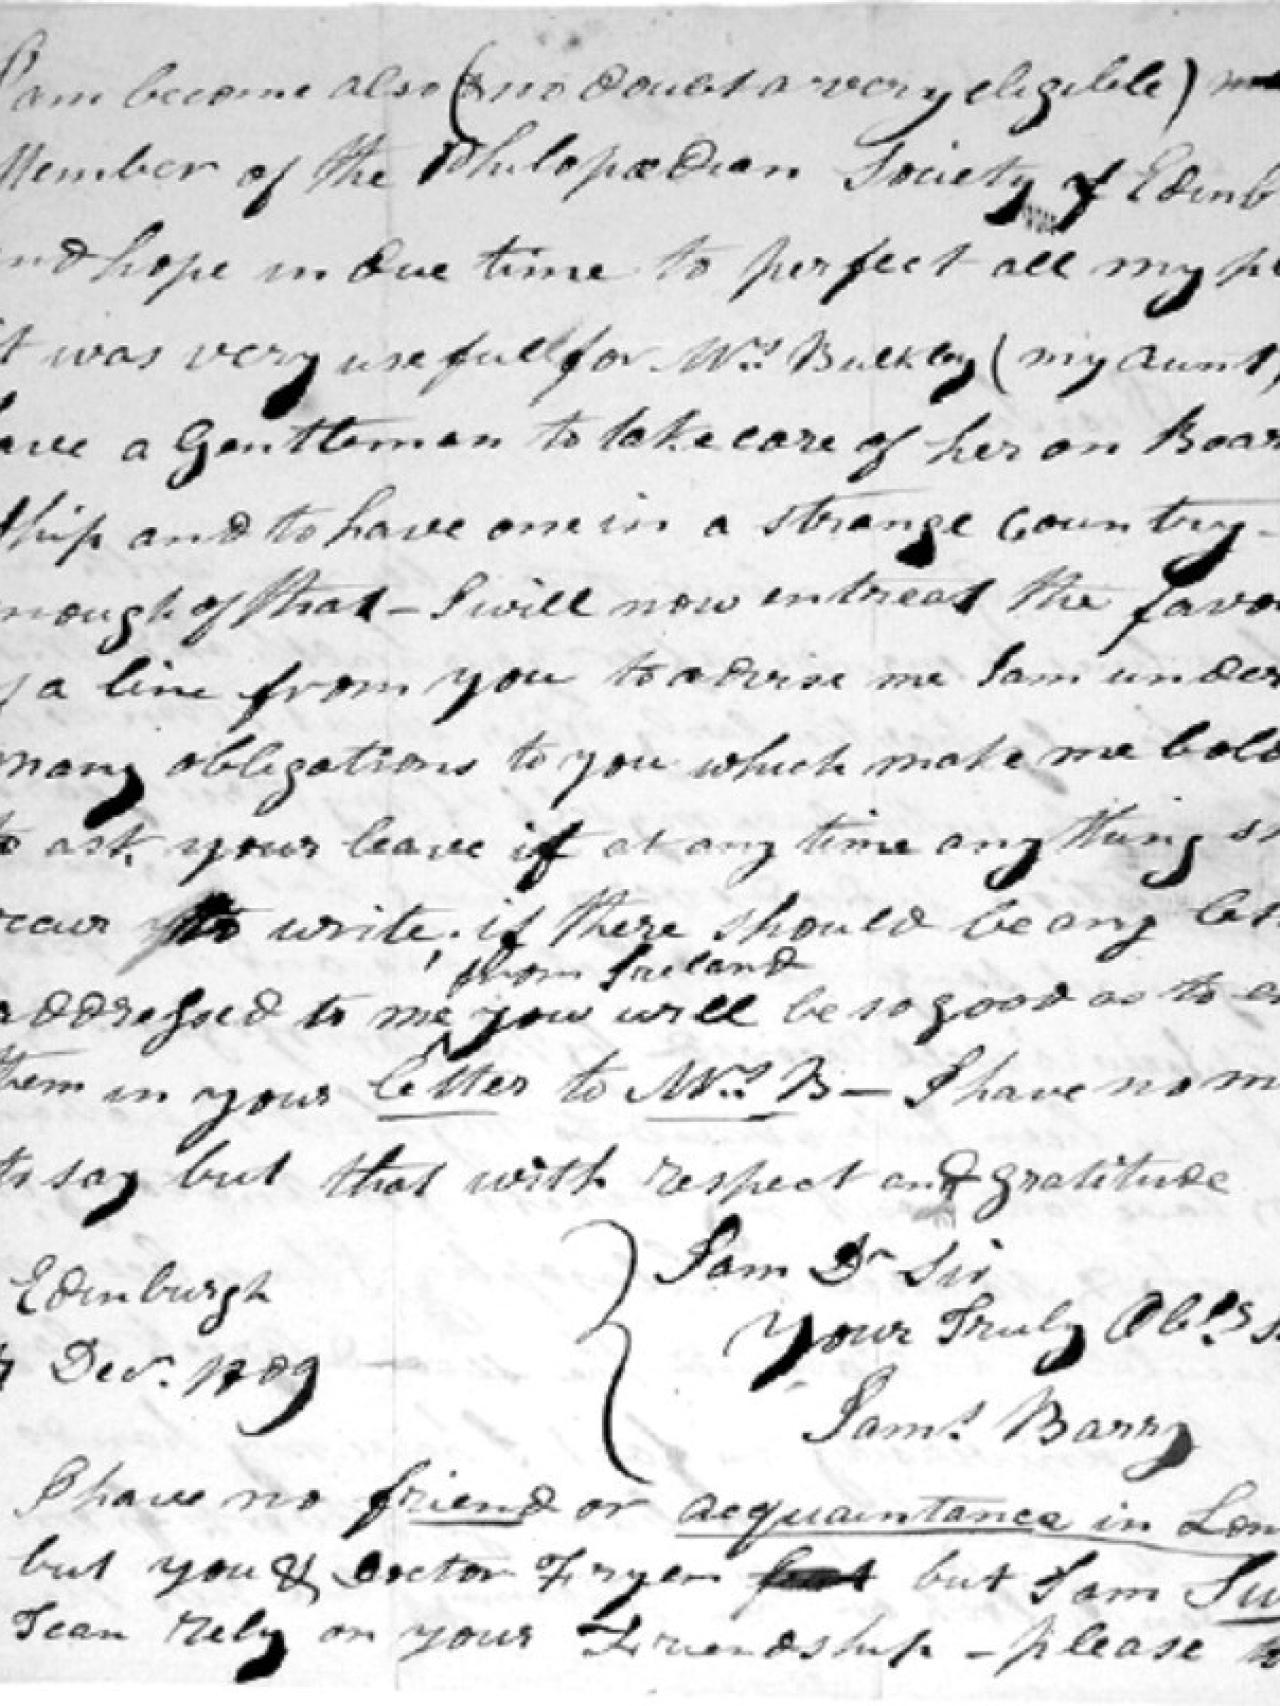 I am become also (& no doubt a very eligible)
Member of the Philopædean Society of Edinb
nd hope in due time to perfect all my pl
t was very usefull for Mrs Bulkley (my aunt)
ave a Gentleman to take care of her on Boar
Ship and to have one in a strange Country -
nough of that - I will now entreat the favo
f a line from you to advise me I am under
many obligations to you which make me bold
to ask your leave if at any time any thing sh
occur to write, if there should be any lett
from Ireland
addressed to me you will be so good as to en
them in your letter to Mrs B — I have no m
to say but that with respect and gratitude
I am Dr Sir
Edinburgh
Your Truly Obts s
Decr. 1809
Jams Barry
I have no friend or acquaintance in Lon
but you & Doctor Fryer but I am Su
I can rely on your Friendship - please